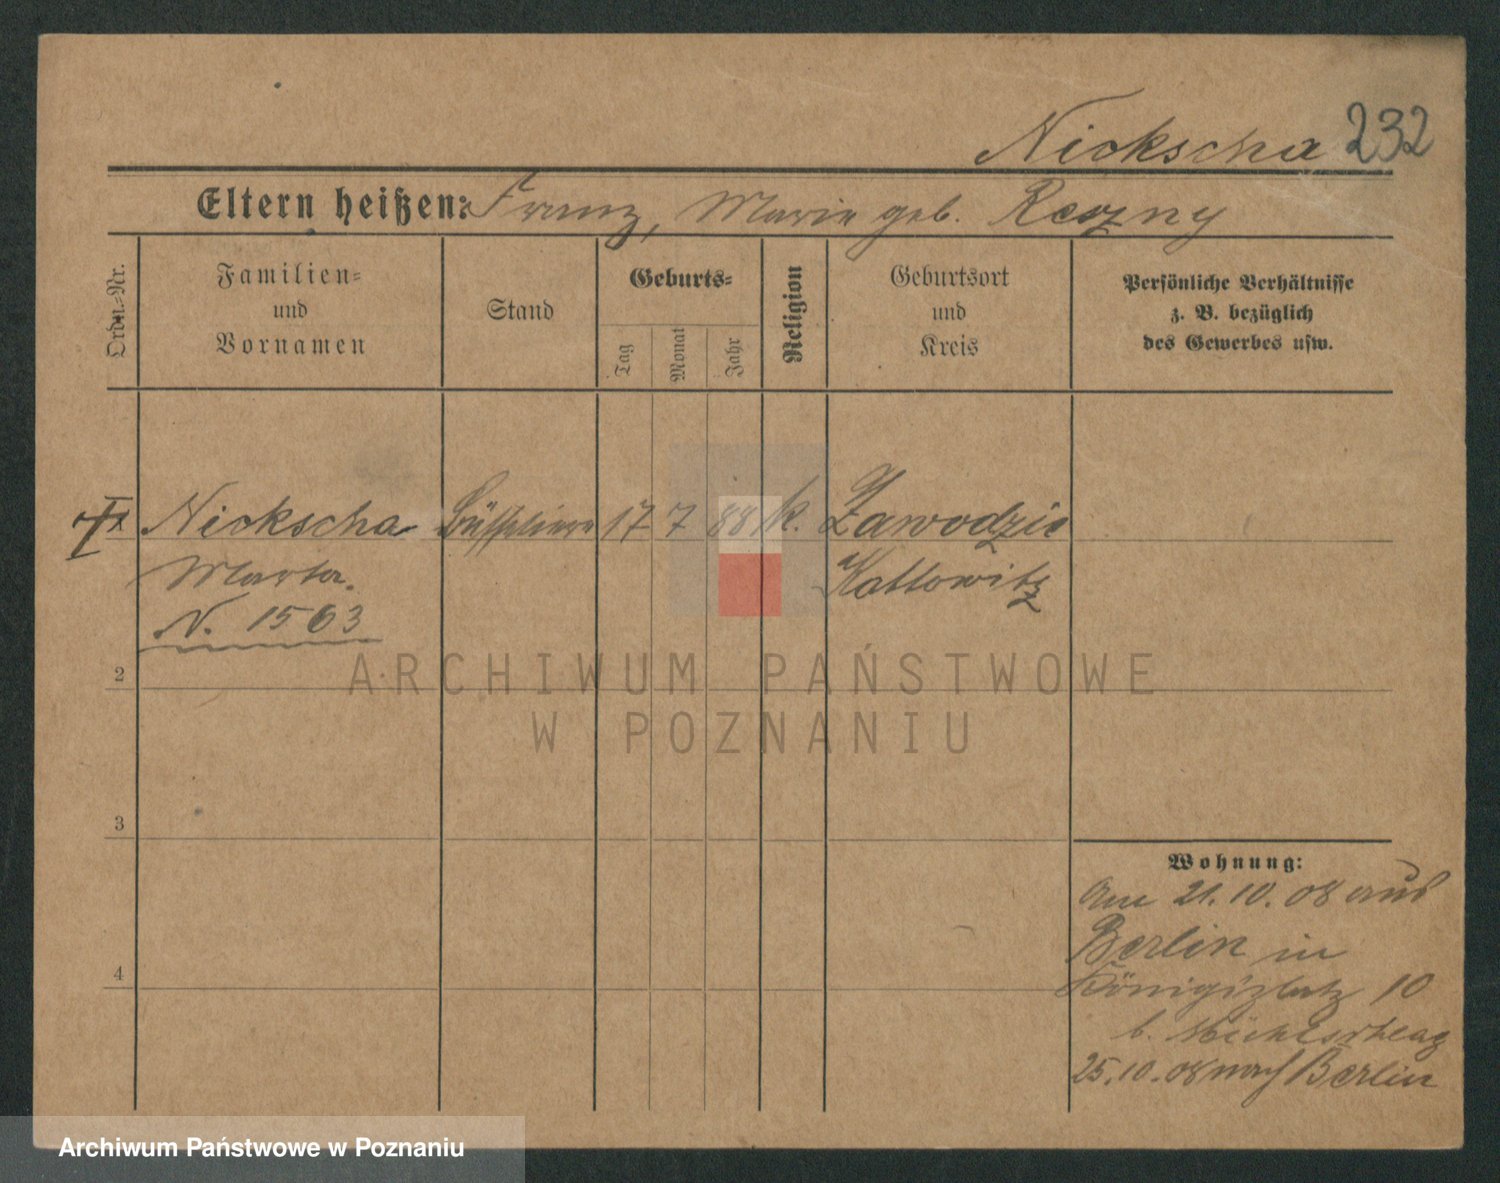 Nickscha 232
Eltern heißen: Franz, Marie geb. Reczny
Ordn.-Nr.
Familien-
und
Vornamen
Stand
Geburts-
Tag
Monat
Jahr
Religion
Geburtsort
und
Kreis
Persönliche Verhältnisse
z. B. bezüglich
des Gewerbes usw.
Nickscha 17 7 88 k. Zawodzie
Marta. Kattowitz
N. 1563
2
3
4
ARCHIWUM PAŃSTWOWE
W POZNANIU
Wohnung:
Am 21.10.08 aus
Berlin in
Königsplatz 10
b.
25.10.08 nach Berlin
Archiwum Państwowe w Poznaniu